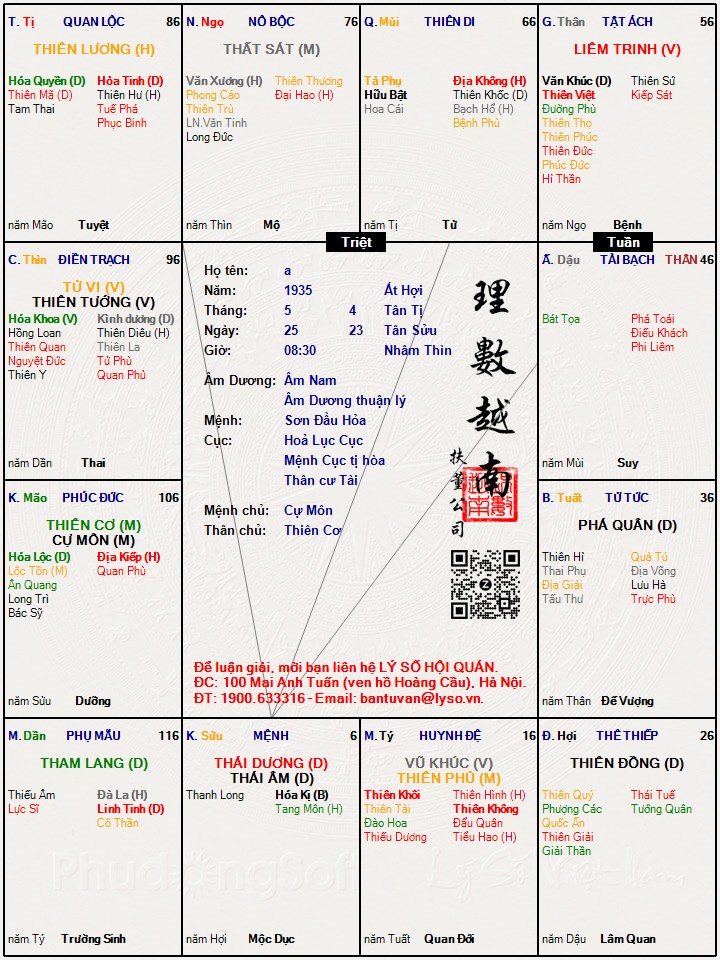 T. Tị QUAN LỘC 86
THIÊN LƯƠNG (H)
Hóa Quyền (D) Hỏa Tinh (D)
Thiên Mã (D) Thiên Hư (H)
Tam Thai Tuế Phá
Phục Binh
năm Mão Tuyệt
N. Ngọ NÔ BỘC 76
THẤT SÁT (M)
Văn Xương (H) Thiên Thương
Phong Cáo Đại Hao (H)
Thiên Trù
LN.Văn Tinh
Long Đức
năm Thìn Mộ
Q. Mùi THIÊN DI 66
Tả Phụ Địa Không (H)
Hữu Bật Thiên Khốc (D)
Hoa Cái Bạch Hổ (H)
Bệnh Phù
năm Tị Tử
G. Thân TẬT ÁCH 56
LIÊM TRINH (V)
Văn Khúc (D) Thiên Sứ
Thiên Việt Kiếp Sát
Đường Phù
Thiên Thọ
Thiên Phúc
Thiên Đức
Phúc Đức
Hỉ Thần
năm Ngọ Bệnh
Triệt
Tuần
C. Thìn ĐIỀN TRẠCH 96
TỬ VI (V)
THIÊN TƯỚNG (V)
Hóa Khoa (V) Kình dương (D)
Hồng Loan Thiên Diêu (H)
Thiên Quan Thiên La
Nguyệt Đức Tử Phù
Thiên Y Quan Phủ
năm Dần Thai
Họ tên: a
Năm: 1935 Ất Hợi
Tháng: 5 4 Tân Tị
Ngày: 25 23 Tân Sửu
Giờ: 08:30 Nhâm Thìn
Âm Dương: Âm Nam
Âm Dương thuận lý
Mệnh: Sơn Đầu Hỏa
Cục: Hoả Lục Cục
Mệnh Cục tị hòa
Thân cư Tài
Mệnh chủ: Cự Môn
Thân chủ: Thiên Cơ
理
數
越
南
扶
董
公
司
Ấ. Dậu TÀI BẠCH THÂN 46
Bát Tọa Phá Toái
Điếu Khách
Phi Liêm
năm Mùi Suy
K. Mão PHÚC ĐỨC 106
THIÊN CƠ (M)
CỰ MÔN (M)
Hóa Lộc (D) Địa Kiếp (H)
Lộc Tồn (M) Quan Phù
Ân Quang
Long Trì
Bác Sỹ
năm Sửu Dưỡng
B. Tuất TỬ TỨC 36
PHÁ QUÂN (D)
Thiên Hỉ Quả Tú
Thai Phụ Địa Võng
Địa Giải Lưu Hà
Tấu Thư Trực Phù
năm Thân Đế Vượng
Để luận giải, mời bạn liên hệ LÝ SỐ HỘI QUÁN.
ĐC: 100 Mai Anh Tuấn (ven hồ Hoàng Cầu), Hà Nội.
ĐT: 1900.633316 - Email: bantuvan@lyso.vn.
M. Dần PHỤ MẪU 116
THAM LANG (D)
Thiếu Âm Đà La (H)
Lực Sĩ Linh Tinh (D)
Cô Thần
năm Tý Trường Sinh
K. Sửu MỆNH 6
THÁI DƯƠNG (D)
THÁI ÂM (D)
Thanh Long Hóa Kị (B)
Tang Môn (H)
năm Hợi Mộc Dục
M. Tý HUYNH ĐỆ 16
VŨ KHÚC (V)
THIÊN PHỦ (M)
Thiên Khôi Thiên Hình (H)
Thiên Tài Thiên Không
Đào Hoa Đẩu Quân
Thiếu Dương Tiểu Hao (H)
năm Tuất Quan Đới
Đ. Hợi THÊ THIẾP 26
THIÊN ĐỒNG (D)
Thiên Quý Thái Tuế
Phượng Các Tướng Quân
Quốc Ấn
Thiên Giải
Giải Thần
năm Dậu Lâm Quan